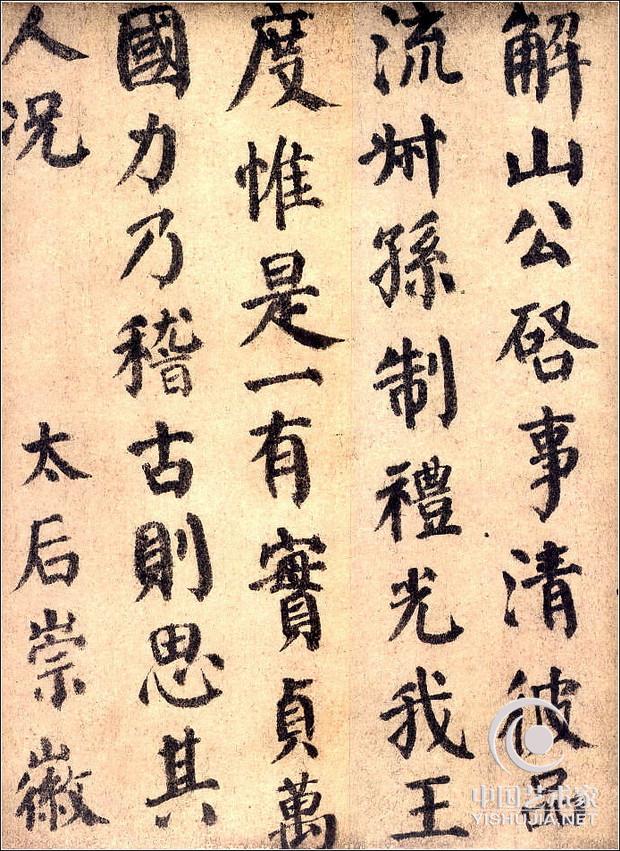 解山公啓事清彼品
流叔孫制禮光我王
度惟是一有實貞萬
國力乃稽古則思其
人況 太后崇徽
中国艺术家
YISHUJIA.NET